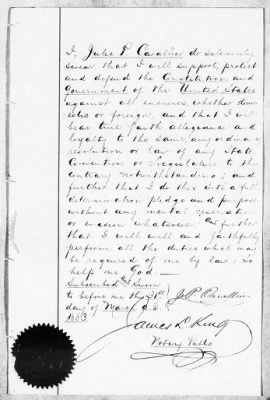 I, Jules P. Cavallier do solemnly
swear that I will support, protect
and defend the Constitution and
Government of the United States
against all enemies, whether dom
estic or foreign, and that I will
bear true faith allegiance and
loyalty to the same, any ordinance
resolution or law of any State
Convention or Legislature to the
contrary notwithstanding; and
further that I do this with a full
determination pledge and purpose
without any mental reservation
or evasion whatsoever. And further
that I will well and faithfully
perform all the duties which may
be required of me by law. So
help me God.—
Subscribed & Sworn
to before me this 21st J P
day of March A.D.
1863
James L
Notary Public